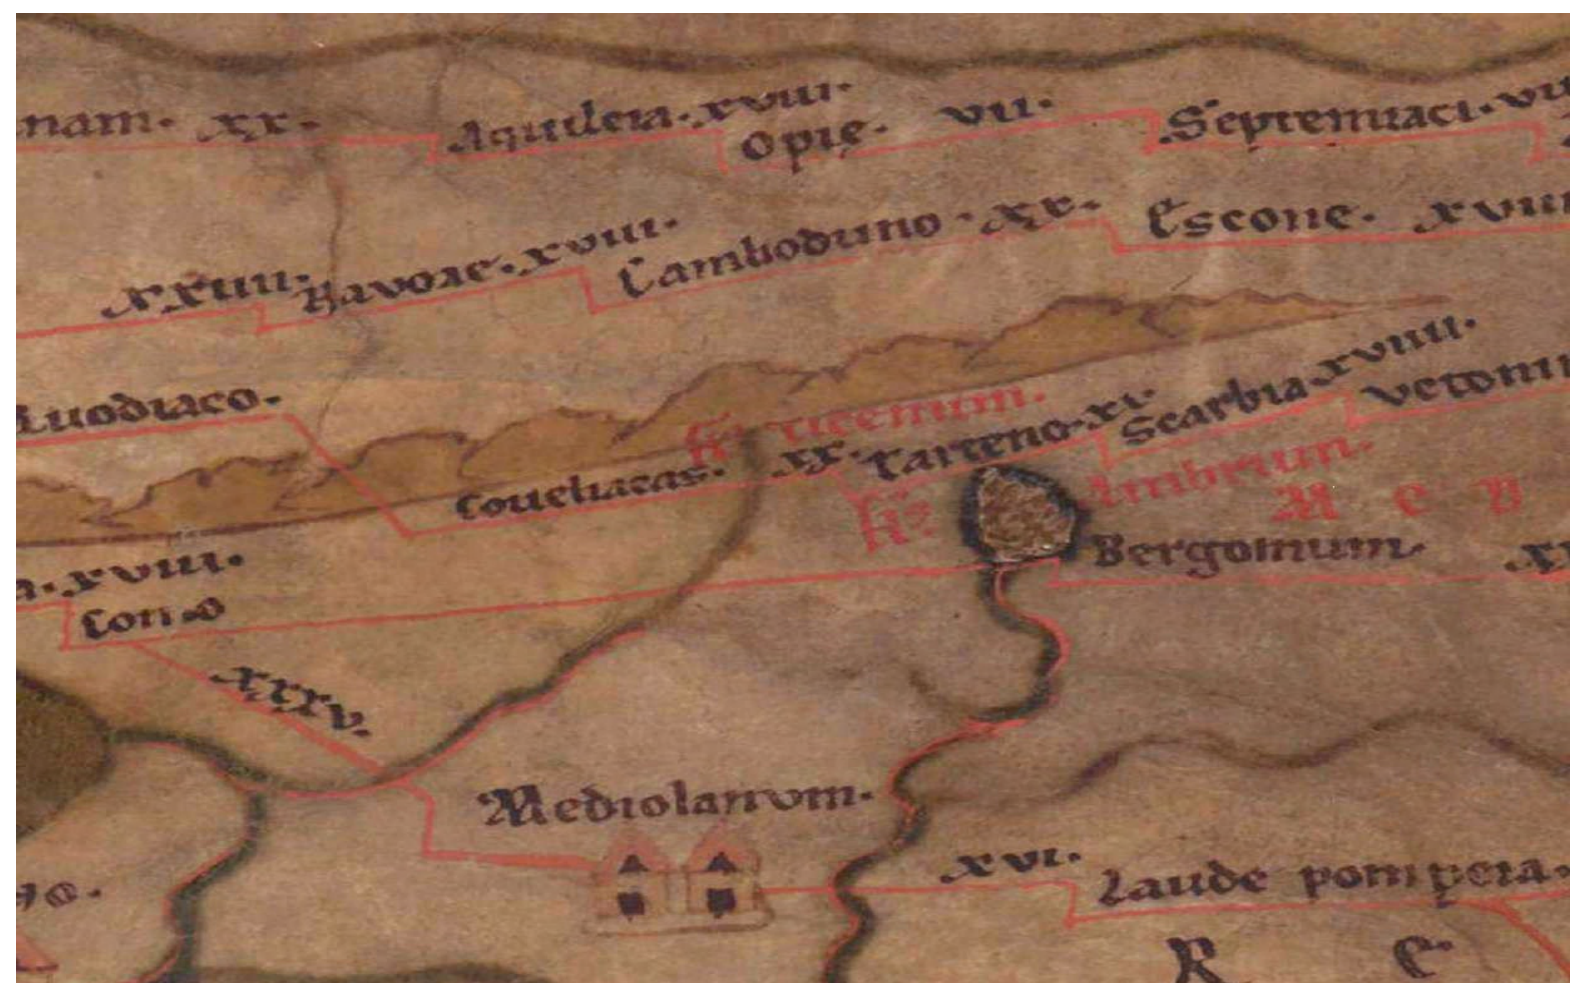 nam. xx.
Aquileia. xviii.
Opie. vii.
Septemiaci. vii
xxiiii.
Navoae. xviii.
Camboduno. xx.
Escone. xviii
Auodiaco.
Coveliacas. xx.
Tarteno. xi.
Scarbia. xviiii.
vetoni
fl.
ticenum.
fl.
Ambrum.
M E B
a. xviii.
Como
Bergomum.
xx
xxxv.
Mediolanvm.
xvi.
Laude pompeia.
R E